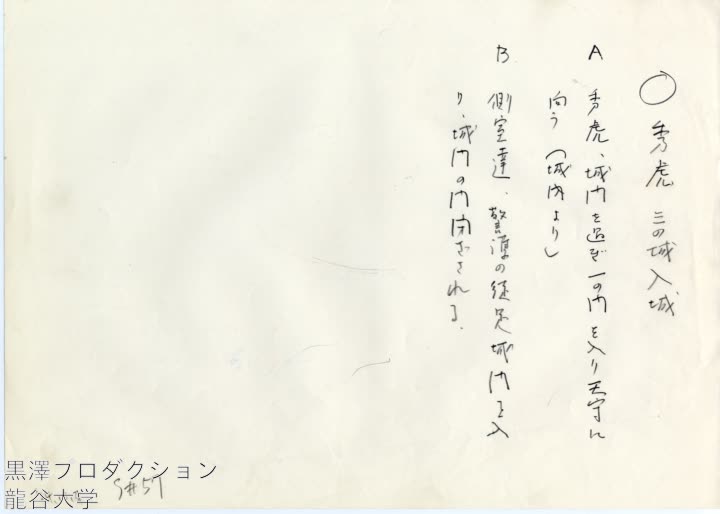 ○ 秀虎 三の城入城
A 秀虎、城門を過ぎ一の門を入り天守に
向う(城内より)
B 側室達、警護の徒兵城門を入
り、城門の門閉ざされる.
S#57
黒澤プロダクション
龍谷大学